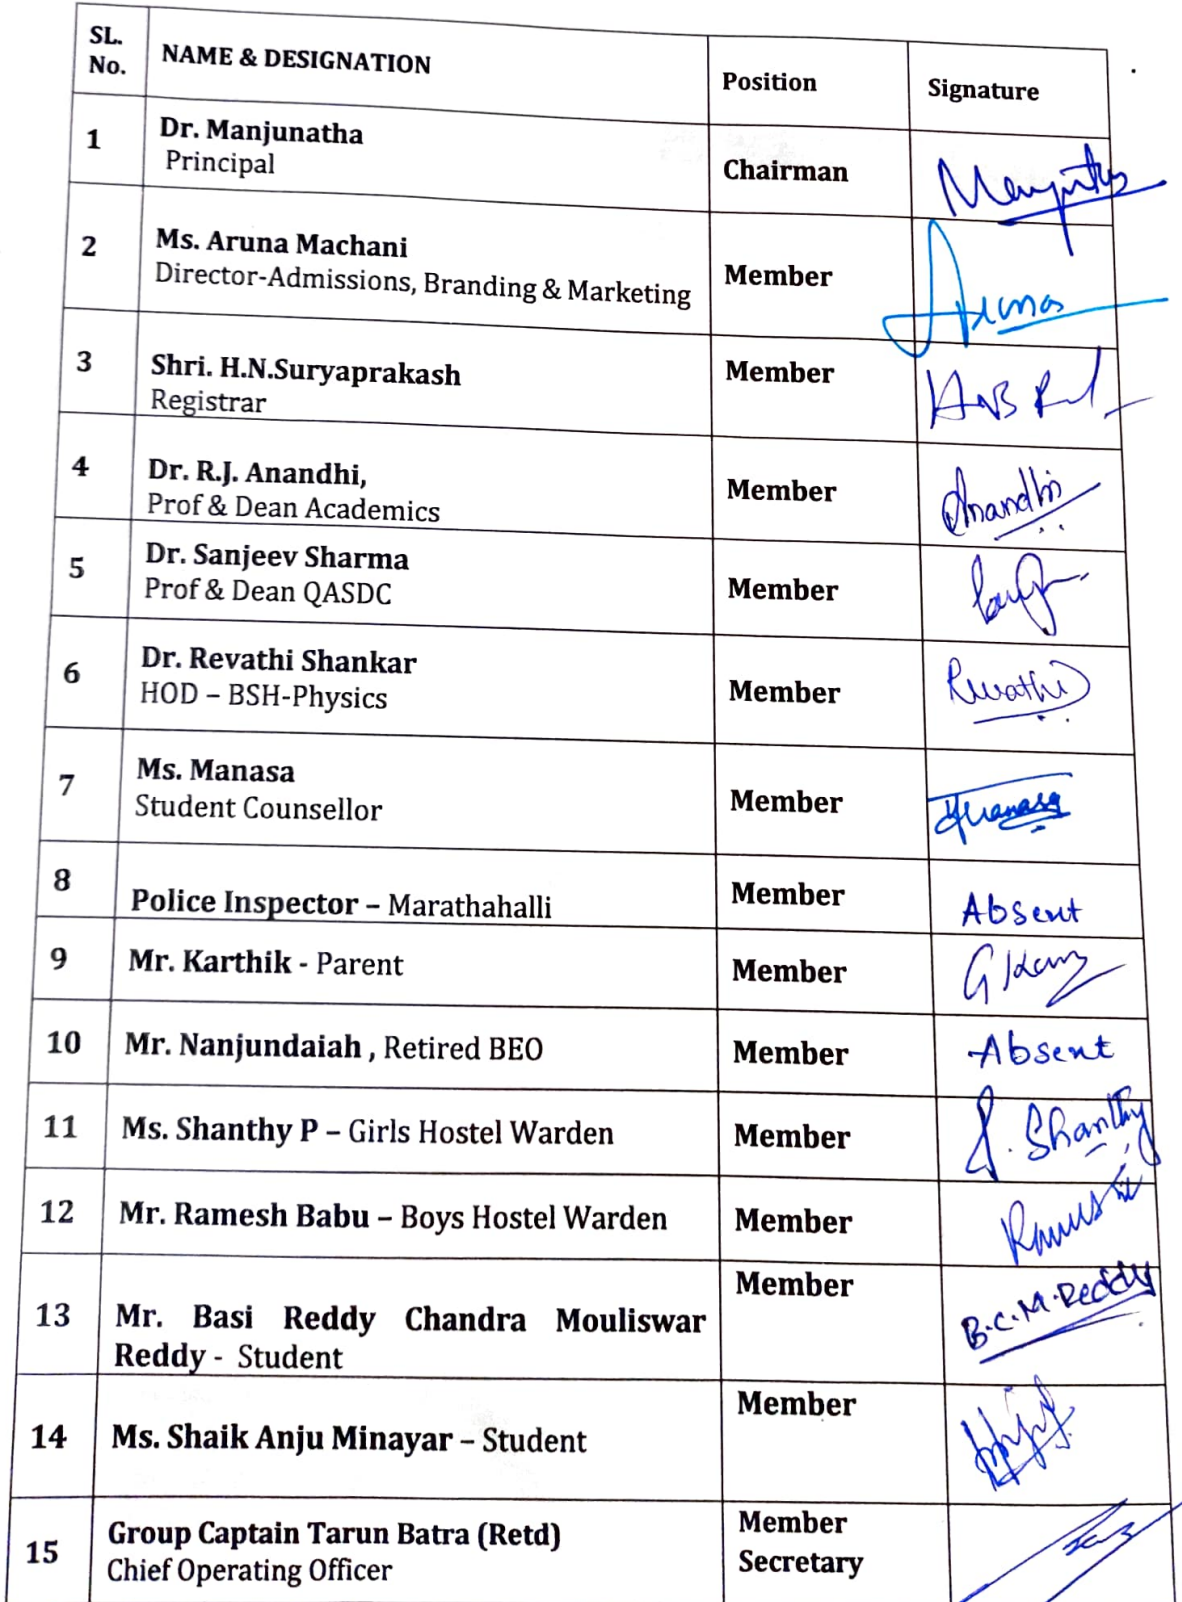 SL. No. NAME & DESIGNATION Position Signature
1 Dr. Manjunatha
Principal Chairman
2 Ms. Aruna Machani
Director-Admissions, Branding & Marketing Member Aruna
3 Shri. H.N.Suryaprakash
Registrar Member
4 Dr. R.J. Anandhi,
Prof & Dean Academics Member Anandhi
5 Dr. Sanjeev Sharma
Prof & Dean QASDC Member
6 Dr. Revathi Shankar
HOD – BSH-Physics Member Revathi
7 Ms. Manasa
Student Counsellor Member Manasa
8 Police Inspector – Marathahalli Member Absent
9 Mr. Karthik - Parent Member
10 Mr. Nanjundaiah , Retired BEO Member Absent
11 Ms. Shanthy P – Girls Hostel Warden Member P. Shanthy
12 Mr. Ramesh Babu – Boys Hostel Warden Member
13 Mr. Basi Reddy Chandra Mouliswar
Reddy - Student Member B.C.M.Reddy
14 Ms. Shaik Anju Minayar – Student Member
15 Group Captain Tarun Batra (Retd)
Chief Operating Officer Member
Secretary